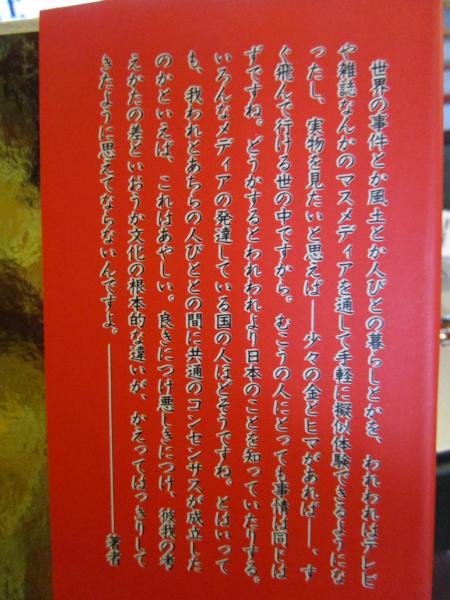 世界の事件とか風土とか人びとの暮らしとかを、われわれはテレビ
や雑誌なんかのマスメディアを通して手軽に擬似体験できるようにな
ったし、実物を見たいと思えば――少々の金とヒマがあれば――、す
ぐ飛んで行ける世の中ですから。むこうの人にとっても事情は同じは
ずですね。どうかするとわれわれより日本のことを知っていたりする。
いろんなメディアの発達している国の人ほどそうですね。とはいって
も、我われとあちらの人びととの間に共通のコンセンサスが成立した
のかといえば、これはあやしい。良きにつけ悪しきにつけ、彼我の考
えかたの差といおうか文化の根本的な違いが、かえってはっきりして
きたように思えてならないんですよ。――――著者